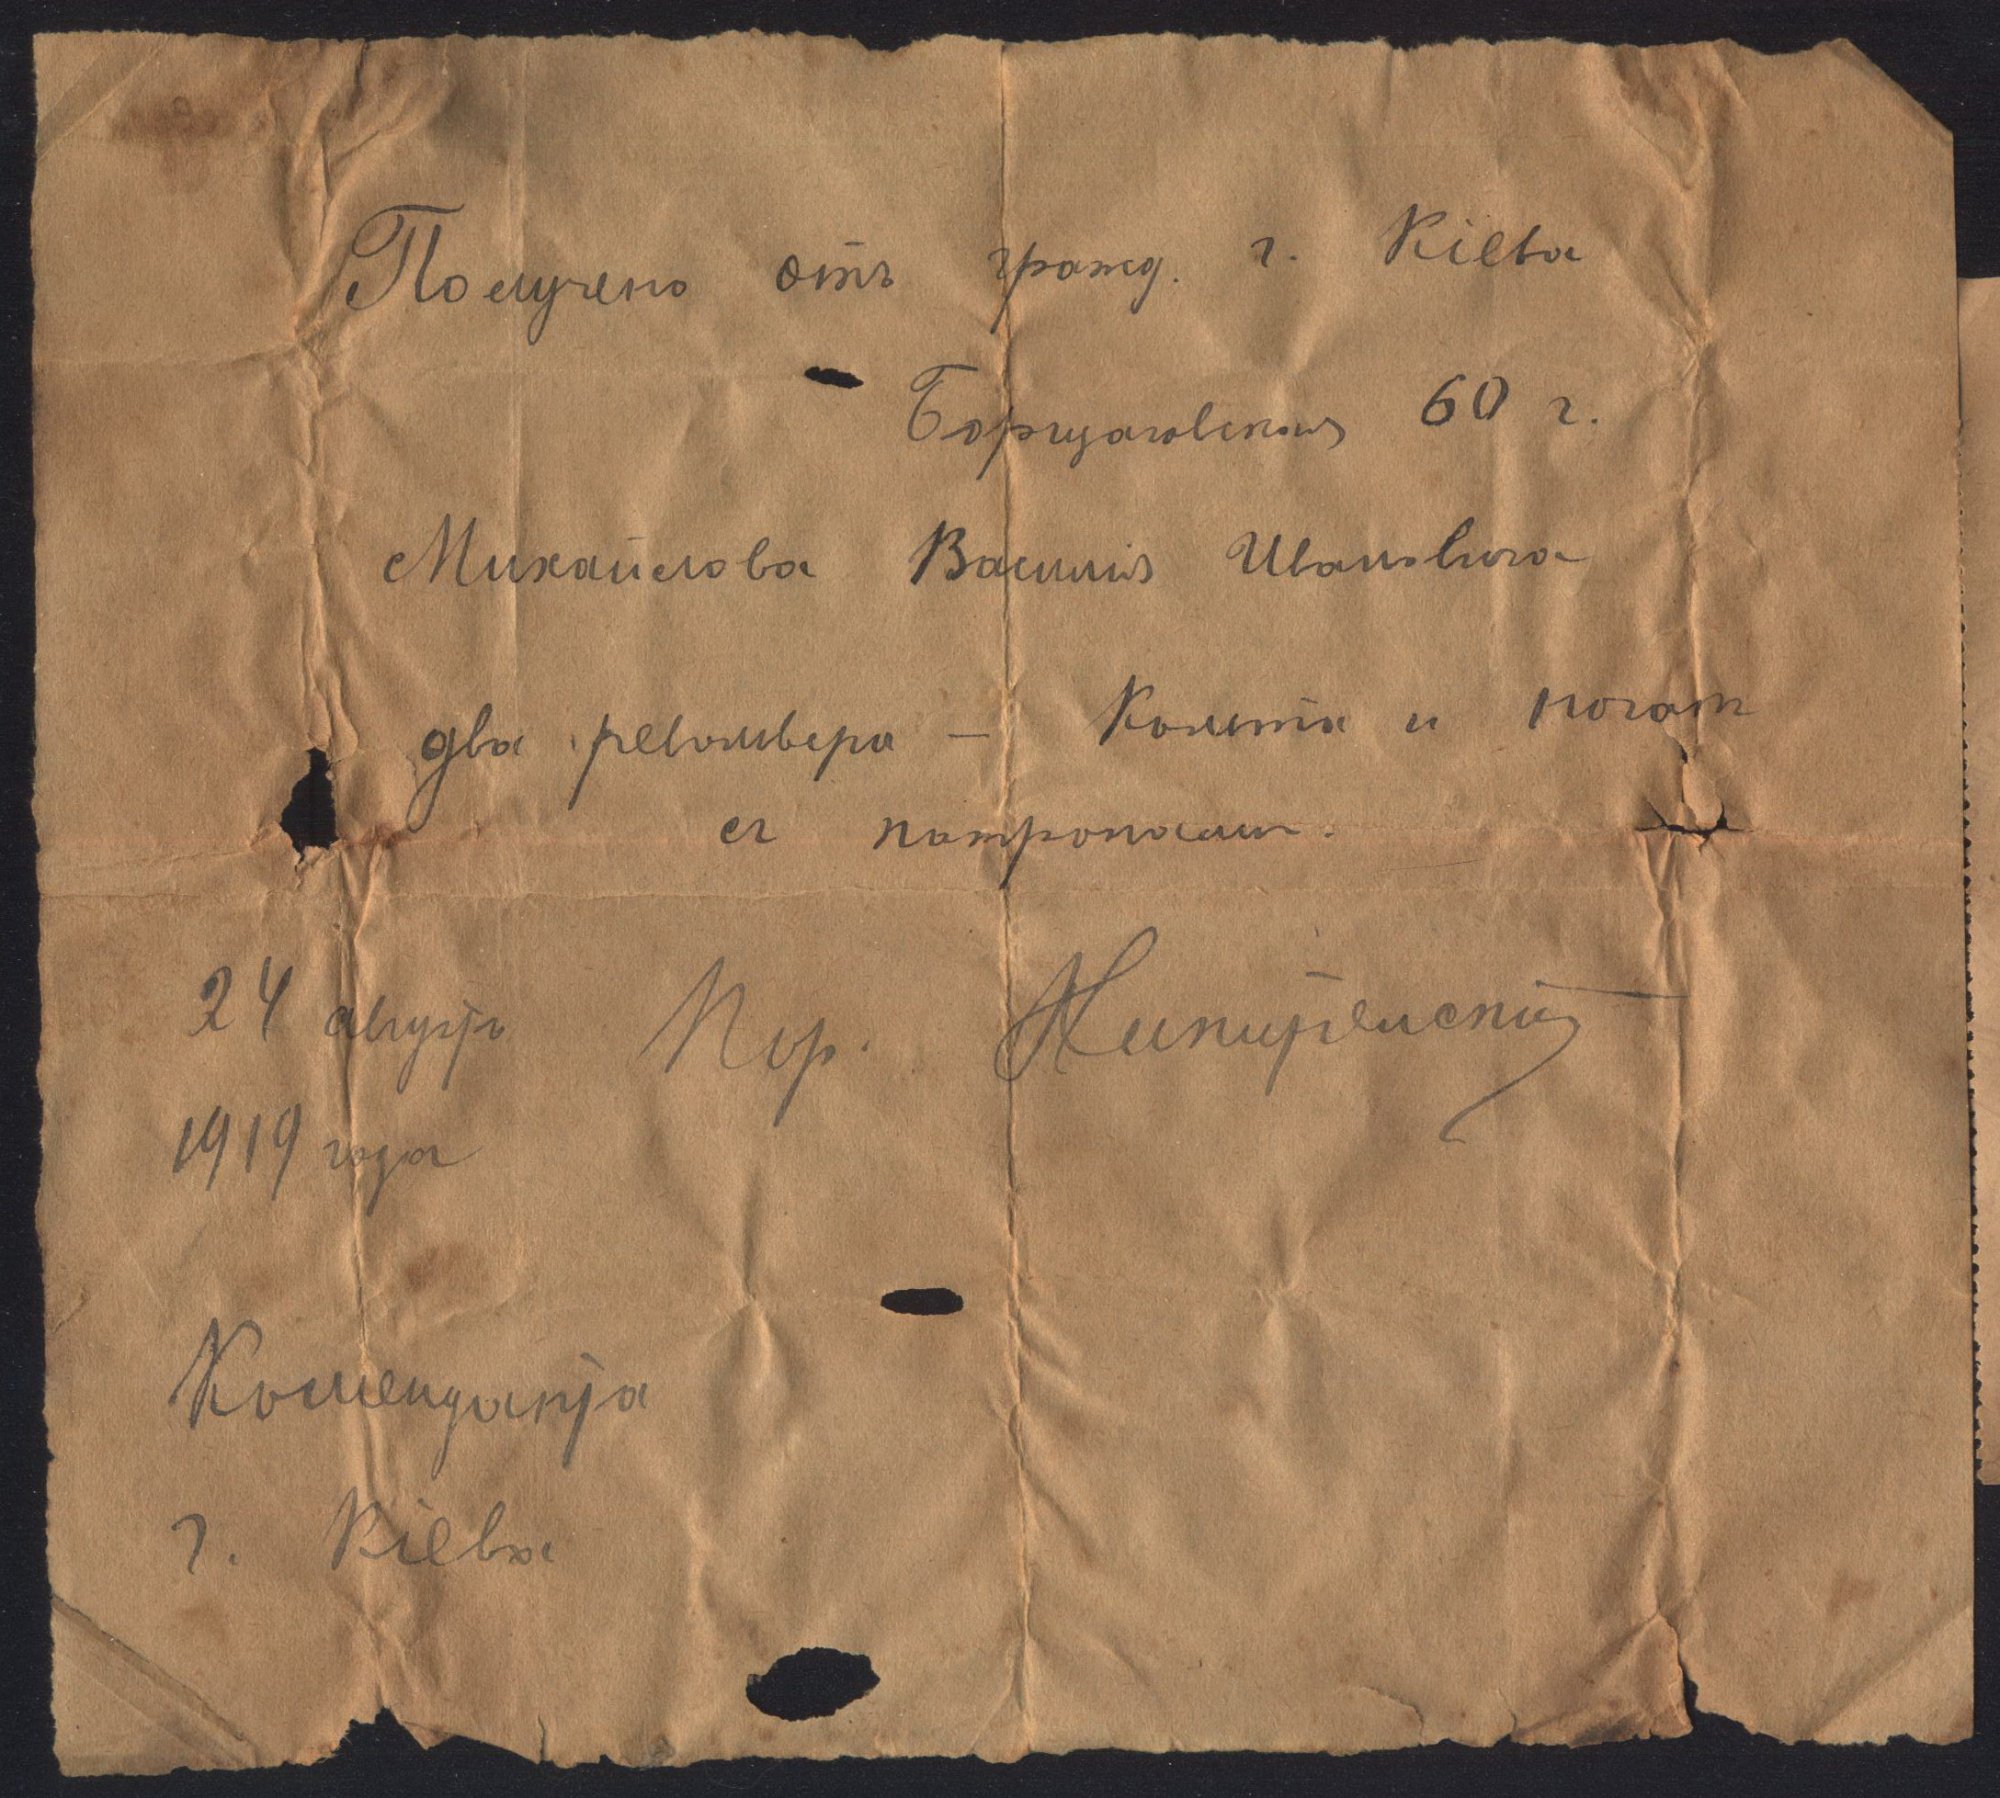 Получено отъ гражд. г. Кіева
Борщаговская 60 г.
Михайлова Василія Ивановича
два револьвера – Кольта и наган
съ патронами.
24 августа Пор.
1919 года
Коменданта
г. Кіева